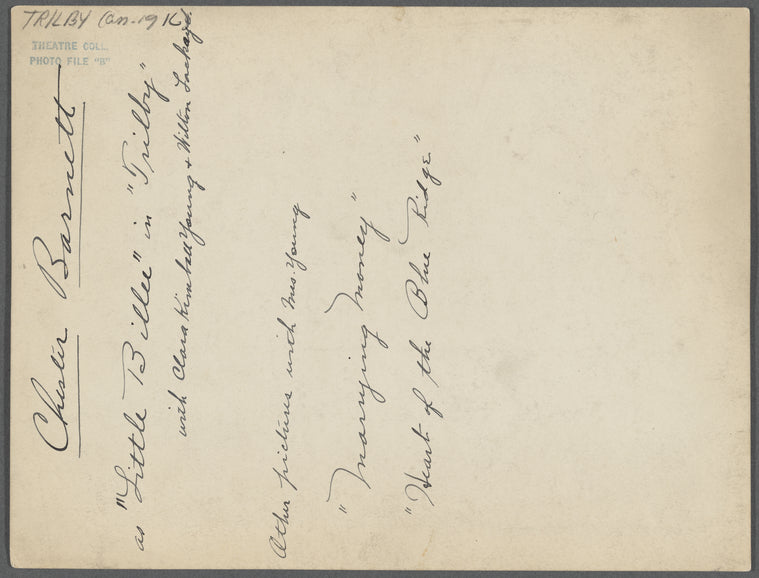 TRILBY Can. 19
THEATRE COLL.
PHOTO FILE "B"
Chester Barnett
as "Little Billee" in "Trilby"
with Clara Kimball Young & Wilton Lackaye.
Other pictures with Miss. Young
"Marrying Money"
"Heart of the Blue Ridge."